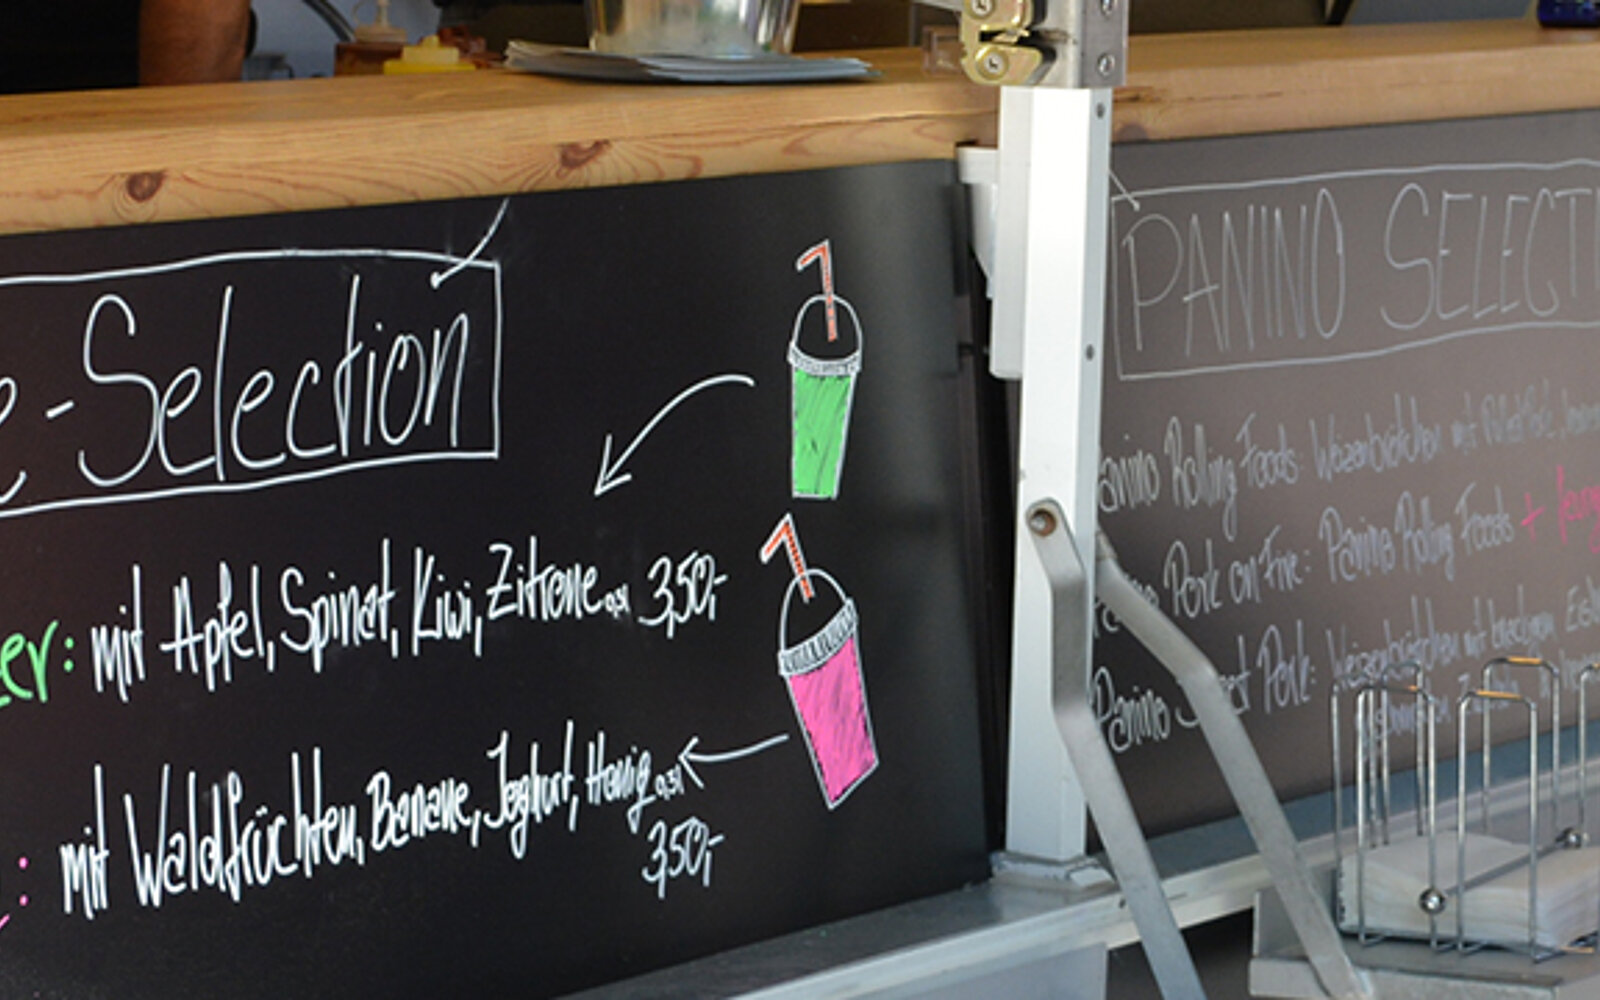 -Selection
er: mit Apfel, Spinat, Kiwi, Zitrone 0,3l 3,50,-
: mit Waldfrüchten, Banane, Joghurt, Honig 0,3l
3,50,-
PANINO SELECTI
Panino Rolling Foods: Weizenbrötchen mit Pulled Pork,
Pork on Fire: Panino Rolling Foods +
Panino Sweet Pork: Weizenbrötchen mit